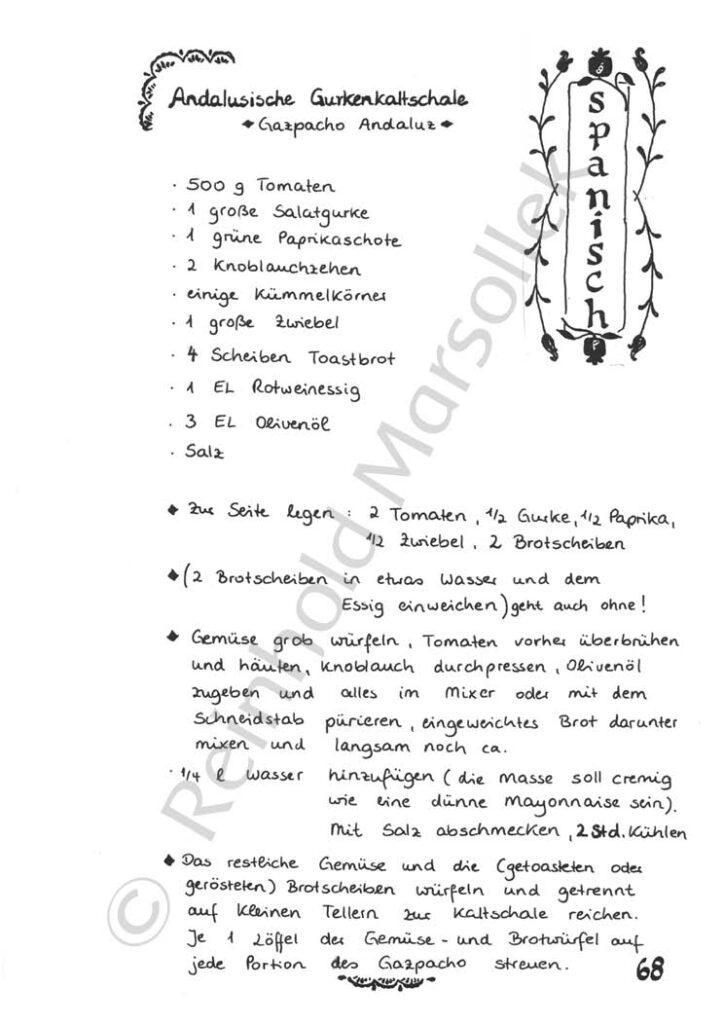 Andalusische Gurkenkaltschale
Gazpacho Andaluz
spanisch
· 500 g Tomaten
· 1 große Salatgurke
· 1 grüne Paprikaschote
· 2 Knoblauchzehen
· einige Kümmelkörner
· 1 große Zwiebel
· 4 Scheiben Toastbrot
· 1 EL Rotweinessig
· 3 EL Olivenöl
· Salz
◆ Zur Seite legen : 2 Tomaten, 1/2 Gurke, 1/2 Paprika,
1/2 Zwiebel, 2 Brotscheiben
◆ (2 Brotscheiben in etwas Wasser und dem
Essig einweichen) geht auch ohne!
◆ Gemüse grob würfeln, Tomaten vorher überbrühen
und häuten, Knoblauch durchpressen, Olivenöl
zugeben und alles im Mixer oder mit dem
Schneidstab pürieren, eingeweichtes Brot darunter
mixen und langsam noch ca.
· 1/4 l Wasser hinzufügen (die Masse soll cremig
wie eine dünne Mayonnaise sein).
Mit Salz abschmecken, 2 Std. Kühlen
◆ Das restliche Gemüse und die (getoasteten oder
gerösteten) Brotscheiben würfeln und getrennt
auf kleinen Tellern zur Kaltschale reichen.
Je 1 Löffel der Gemüse- und Brotwürfel auf
jede Portion des Gazpacho streuen.
68
© Reinhold Marsollek